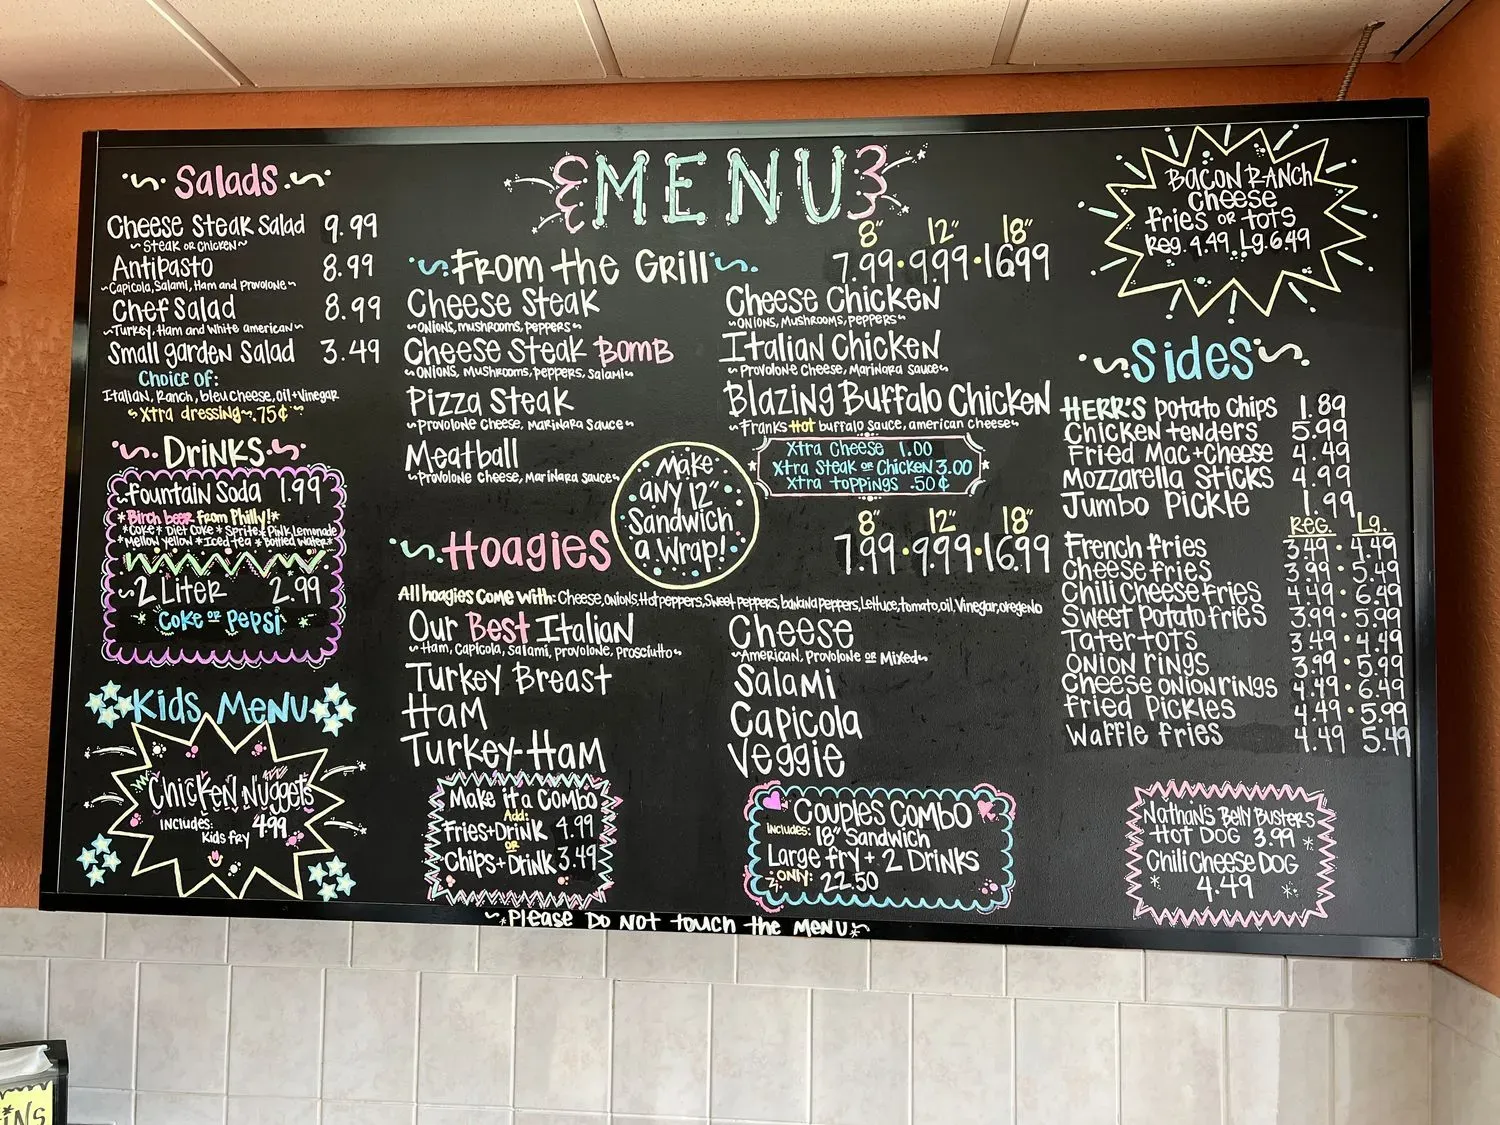 MENU
Salads
Cheese Steak Salad 9.99
~ Steak or Chicken ~
Antipasto 8.99
~ Capicola, Salami, Ham and Provolone ~
Chef Salad 8.99
~ Turkey, Ham and White american ~
Small garden Salad 3.49
Choice of:
Italian, Ranch, bleu cheese, oil + Vinegar
~ Xtra dressing ~ .75¢ ~
Drinks
~ fountain Soda 1.99
*Birch beer from Philly!*
*Coke * Diet Coke * Sprite * Pink Lemonade
*Mellow Yellow * Iced Tea * Bottled Water*
~ 2 Liter 2.99
Coke or Pepsi
Kids Menu
Chicken Nuggets
Includes: 4.99
Kids fry
From the Grill
8" 12" 18"
7.99 • 9.99 • 16.99
Cheese Steak
~ Onions, mushrooms, peppers ~
Cheese Steak BOMB
~ Onions, Mushrooms, peppers, Salami ~
Pizza Steak
~ Provolone Cheese, Marinara Sauce ~
Meatball
~ Provolone Cheese, Marinara Sauce ~
Cheese Chicken
~ Onions, Mushrooms, peppers ~
Italian Chicken
~ Provolone Cheese, Marinara Sauce ~
Blazing Buffalo Chicken
~ Franks Hot buffalo Sauce, american cheese ~
Xtra Cheese 1.00
Xtra Steak or Chicken 3.00
Xtra toppings .50¢
Make
any 12"
Sandwich
a Wrap!
Hoagies
8" 12" 18"
7.99 • 9.99 • 16.99
All hoagies Come With: Cheese, onions, Hot peppers, Sweet peppers, banana peppers, Lettuce, tomato, oil, Vinegar, oregeno
Our Best Italian
~ Ham, Capicola, Salami, provolone, Prosciutto ~
Turkey Breast
Ham
Turkey-Ham
Cheese
~ American, Provolone or Mixed ~
Salami
Capicola
Veggie
Make it a Combo
Add:
Fries + Drink 4.99
or
Chips + Drink 3.49
Couples Combo
Includes: 18" Sandwich
Large fry + 2 Drinks
~ Only: 22.50
Bacon Ranch
Cheese
fries or tots
Reg. 4.49 Lg. 6.49
Sides
HERR'S potato Chips 1.89
Chicken tenders 5.99
Fried Mac + Cheese 4.49
Mozzarella Sticks 4.99
Jumbo Pickle 1.99
Reg. Lg.
French fries 3.49 • 4.49
Cheese fries 3.99 • 5.49
Chili cheese fries 4.49 • 6.49
Sweet Potato fries 3.99 • 5.99
Tater tots 3.49 • 4.49
Onion rings 3.99 • 5.99
Cheese onion rings 4.49 • 6.49
Fried Pickles 4.49 • 5.99
Waffle fries 4.49 5.49
Nathan's Belly Busters
Hot Dog 3.99 *
Chili Cheese Dog
* 4.49 *
~*Please Do Not touch the Menu*~